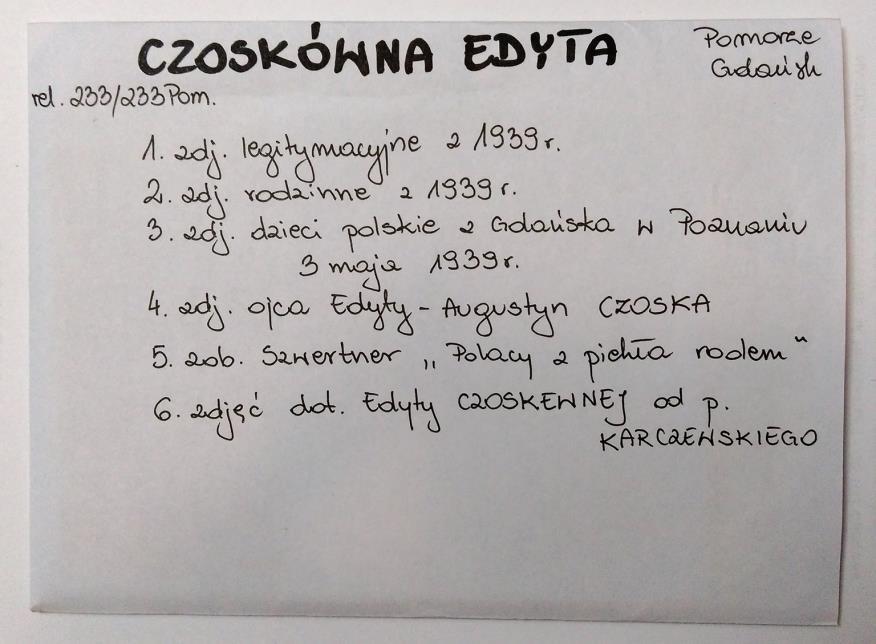 CZOSKÓWNA EDYTA
Pomorze
Gdańsk
rel. 233/233 Pom.
1. zdj. legitymacyjne z 1939 r.
2. zdj. rodzinne z 1939 r.
3. zdj. dzieci polskie z Gdańska w Poznaniu
3 maja 1939 r.
4. zdj. ojca Edyty - Augustyn CZOSKA
5. zob. Szwertner „Polacy z piekła rodem"
6. zdjęć dot. Edyty CZOSKEWNEJ od p.
KARCZEWSKIEGO